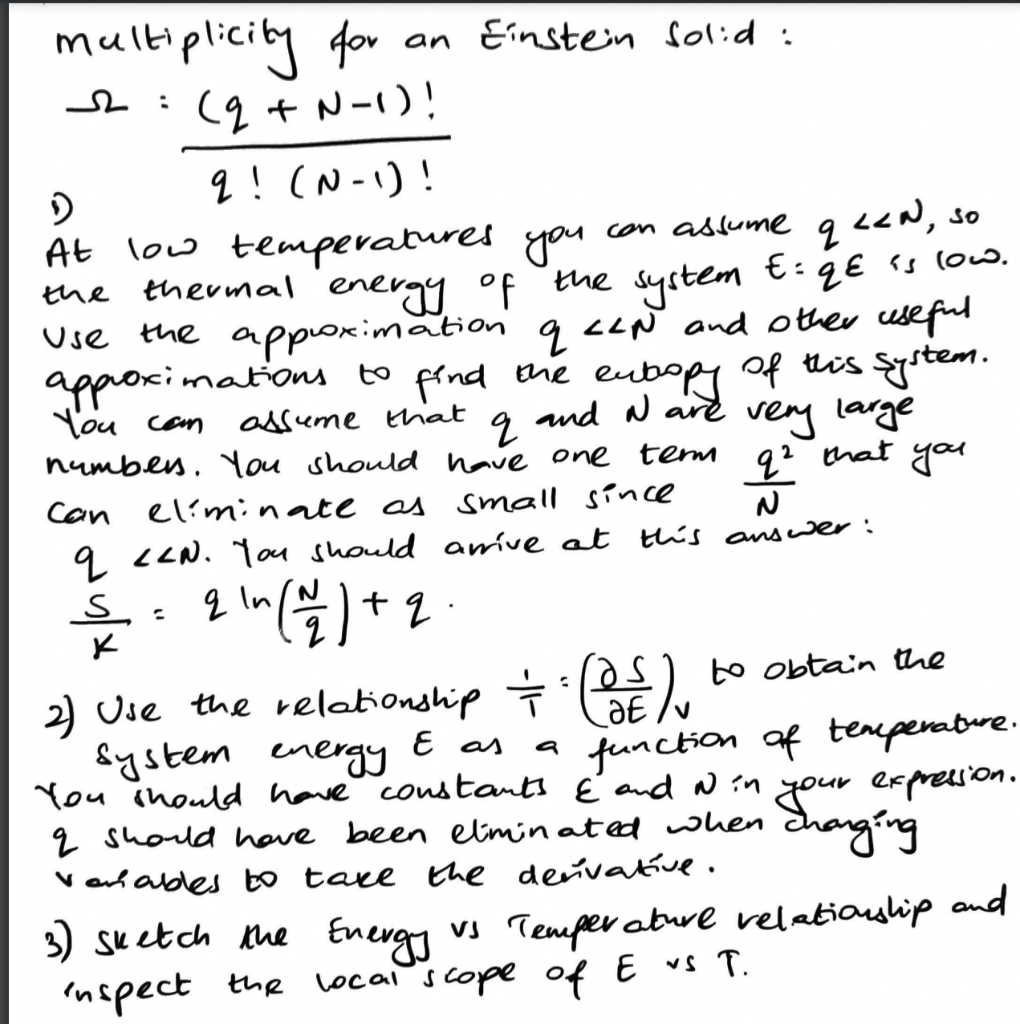 multiplicity for an Einstein solid :
Ω : (q + N-1)!
q! (N-1)!
1)
At low temperatures you can assume q <<N, so
the thermal energy of the system E = qε is low.
Use the approximation q <<N and other useful
approximations to find the entropy of this system.
You can assume that q and N are very large
numbers. You should have one term q² that you
can eliminate as small since N
q <<N. You should arrive at this answer :
S/K = q ln(N/q) + q.
2) Use the relationship 1/T = (∂S/∂E)v to obtain the
system energy E as a function of temperature.
You should have constants ε and N in your expression.
q should have been eliminated when changing
variables to take the derivative.
3) sketch the Energy vs Temperature relationship and
inspect the local scope of E vs T.